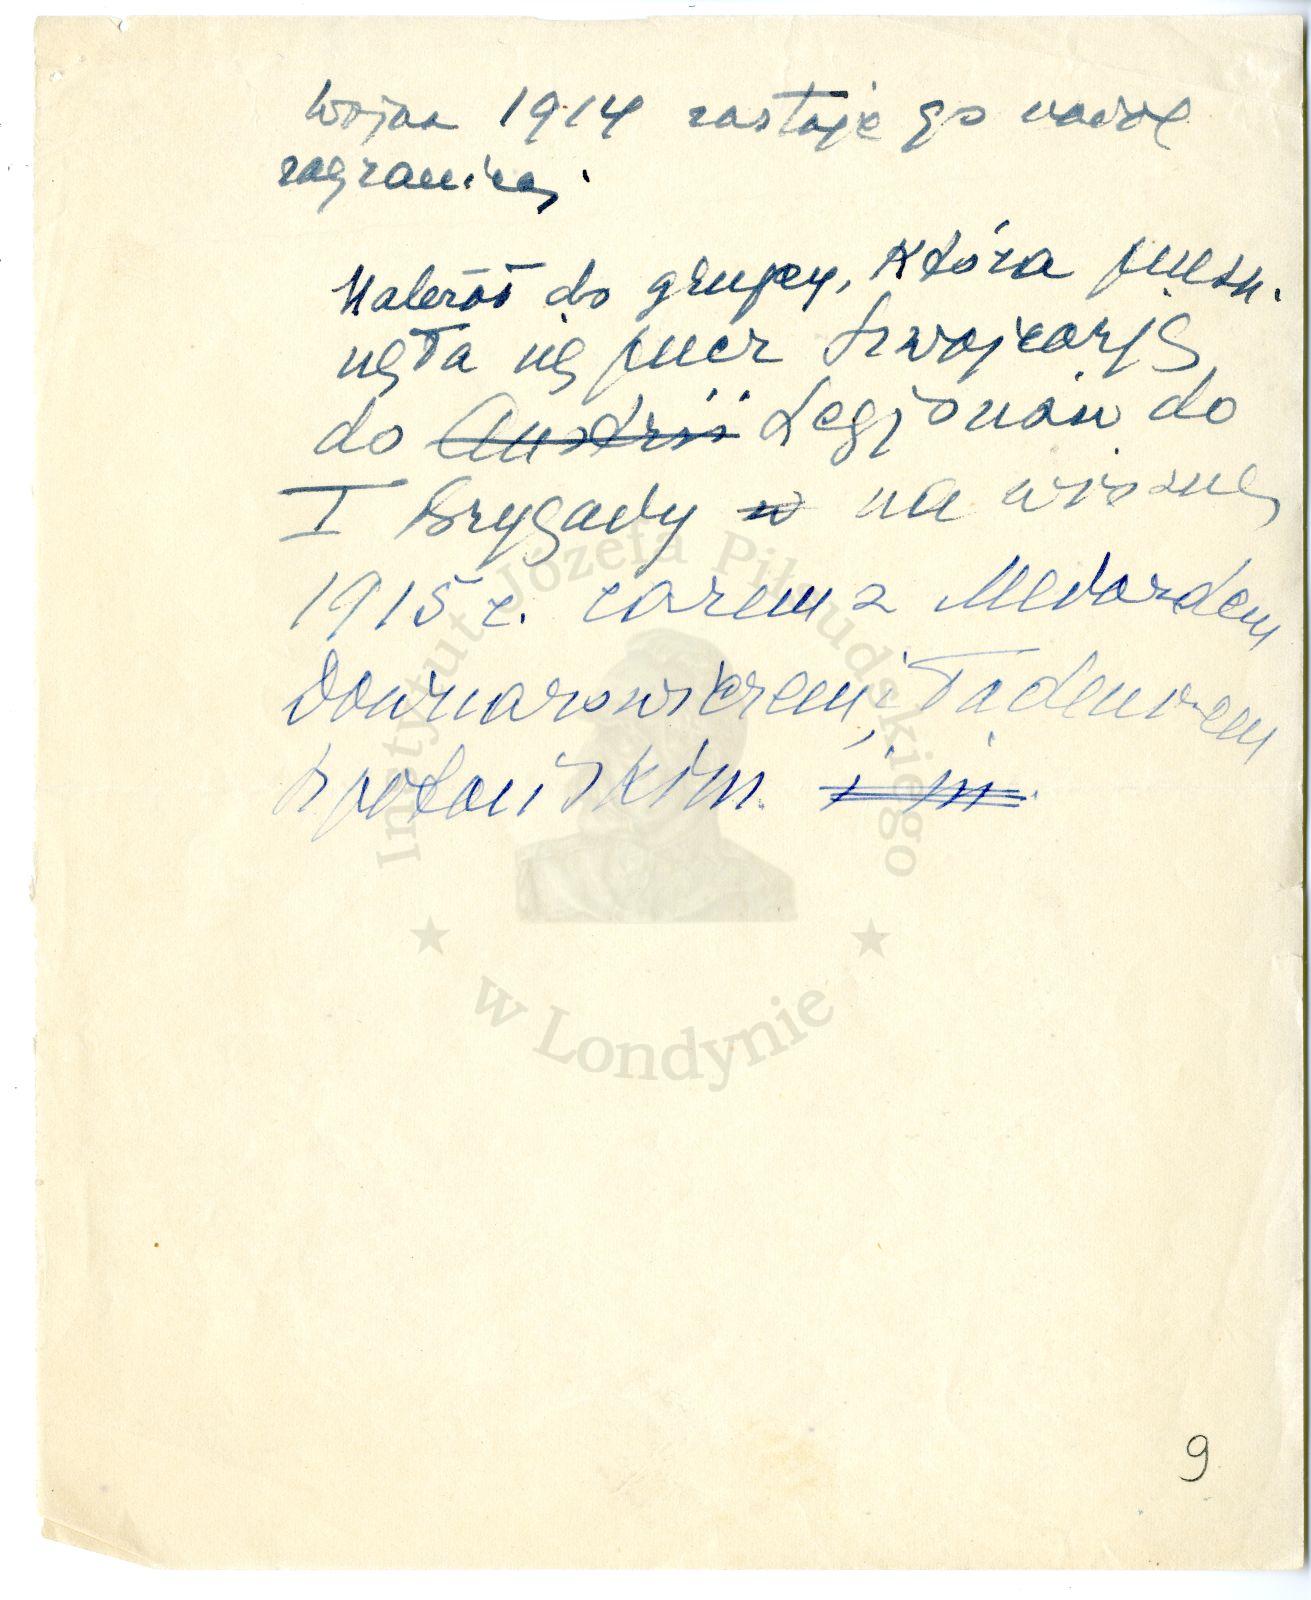 Wojna 1914 zastaje go nadal
zagranicą.
Należał do grupy, która przesu-
nęła się przez Szwajcarję
do Austrii Legjonów do
I Brygady w na wiosnę
1915 r. razem z Medardem
Downarowiczem i Tadeuszem
Szpotańskim i in.
Instytut Józefa Piłsudskiego
w Londynie
9